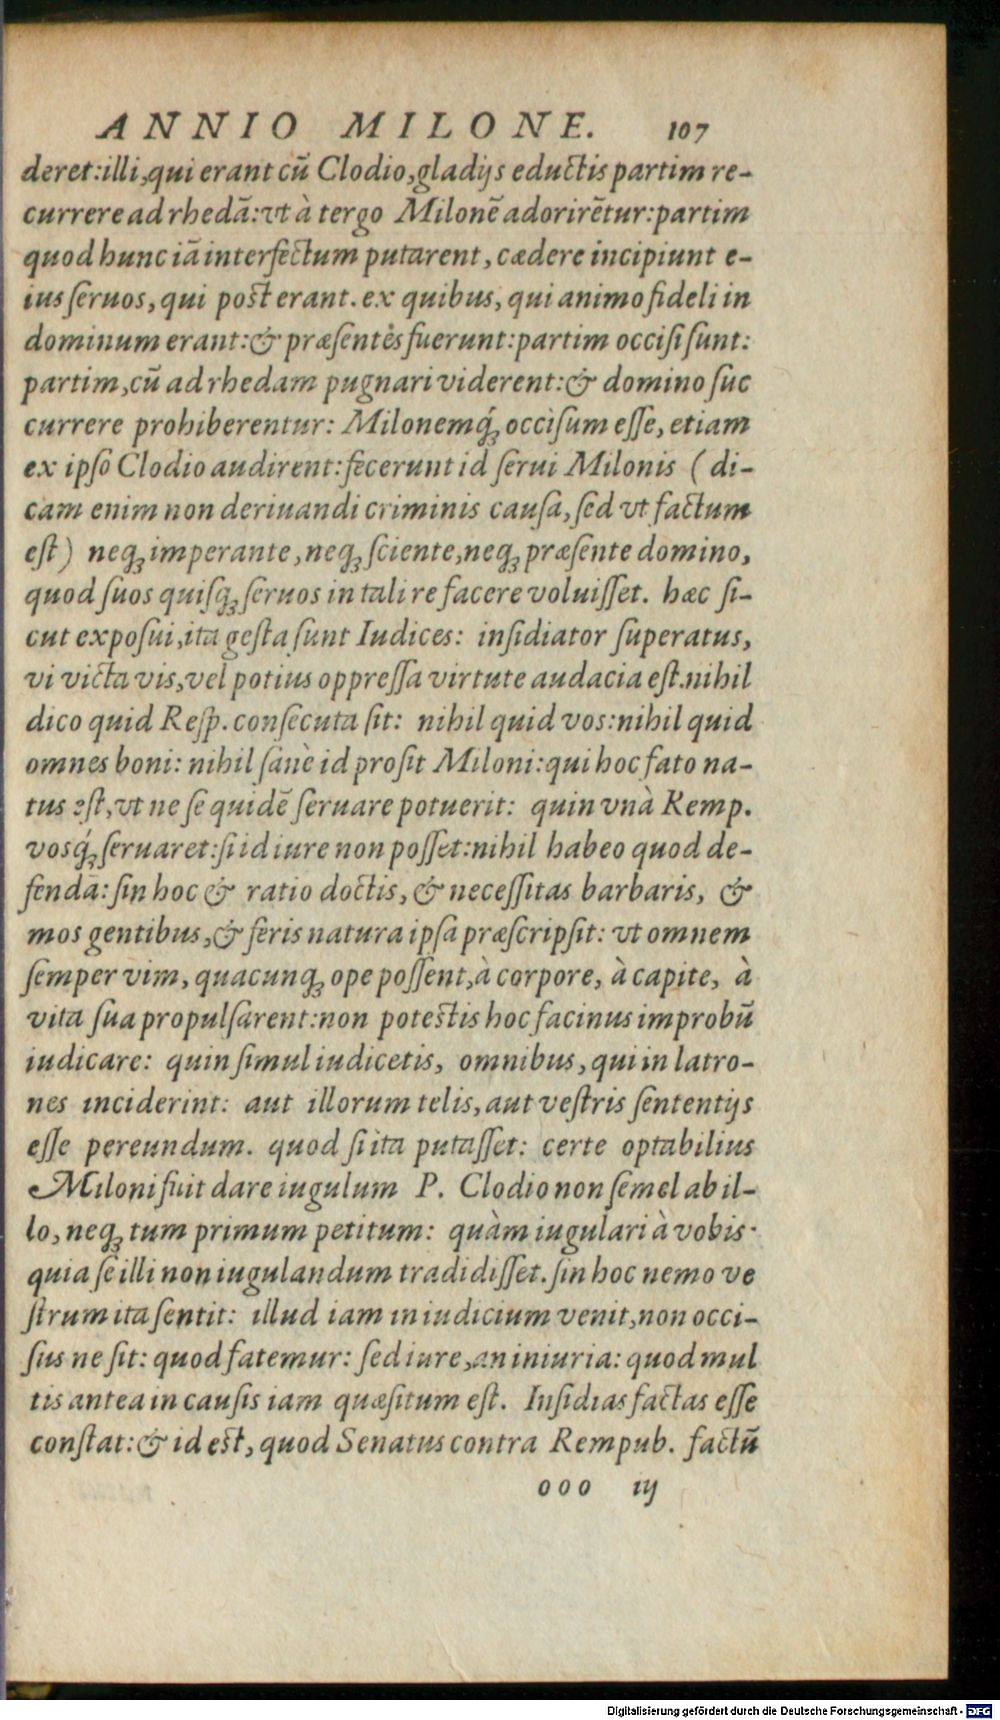 ANNIO MILONE. 107
deret:illi,qui erant cū Clodio,gladijs eductis partim re-
currere ad rhedā:vt à tergo Milonē adorirētur:partim
quod hunc iā interfectum putarent, cædere incipiunt e-
ius ſeruos, qui post erant. ex quibus, qui animo fideli in
dominum erant:& præſentes fuerunt:partim occiſi ſunt:
partim,cū ad rhedam pugnari viderent:& domino ſuc
currere prohiberentur: Milonemq́; occiſum eſſe, etiam
ex ipſo Clodio audirent:fecerunt id ſerui Milonis (di-
cam enim non deriuandi criminis cauſa, ſed vt factum
eſt) neq; imperante, neq; ſciente, neq; præſente domino,
quod ſuos quiſq; ſeruos in tali re facere voluiſſet. hæc ſi-
cut expoſui, ita geſta ſunt Iudices: inſidiator ſuperatus,
vi victa vis, vel potius oppreſſa virtute audacia eſt.nihil
dico quid Reſp. conſecuta ſit: nihil quid vos:nihil quid
omnes boni: nihil ſanè id proſit Miloni:qui hoc fato na-
tus eſt, vt ne ſe quidē ſeruare potuerit: quin vnà Remp.
vosq́; ſeruaret:ſi id iure non poſſet:nihil habeo quod de-
fendā: ſin hoc & ratio doctis, & neceſſitas barbaris, &
mos gentibus, & feris natura ipſa præſcripſit: vt omnem
ſemper vim, quacunq; ope poſſent, à corpore, à capite, à
vita ſua propulſarent:non potestis hoc facinus improbū
iudicare: quin ſimul iudicetis, omnibus, qui in latro-
nes inciderint: aut illorum telis, aut veſtris ſententijs
eſſe pereundum. quod ſi ita putaſſet: certe optabilius
Miloni fuit dare iugulum P. Clodio non ſemel ab il-
lo, neq; tum primum petitum: quàm iugulari à vobis·
quia ſe illi non iugulandum tradidiſſet. ſin hoc nemo ve
ſtrum ita ſentit: illud iam in iudicium venit, non occi-
ſus ne ſit: quod fatemur: ſed iure, an iniuria: quod mul
tis antea in cauſis iam quæſitum eſt. Inſidias factas eſſe
conſtat:& id est, quod Senatus contra Rempub. factū
ooo iij
Digitalisierung gefördert durch die Deutsche Forschungsgemeinschaft - DFG